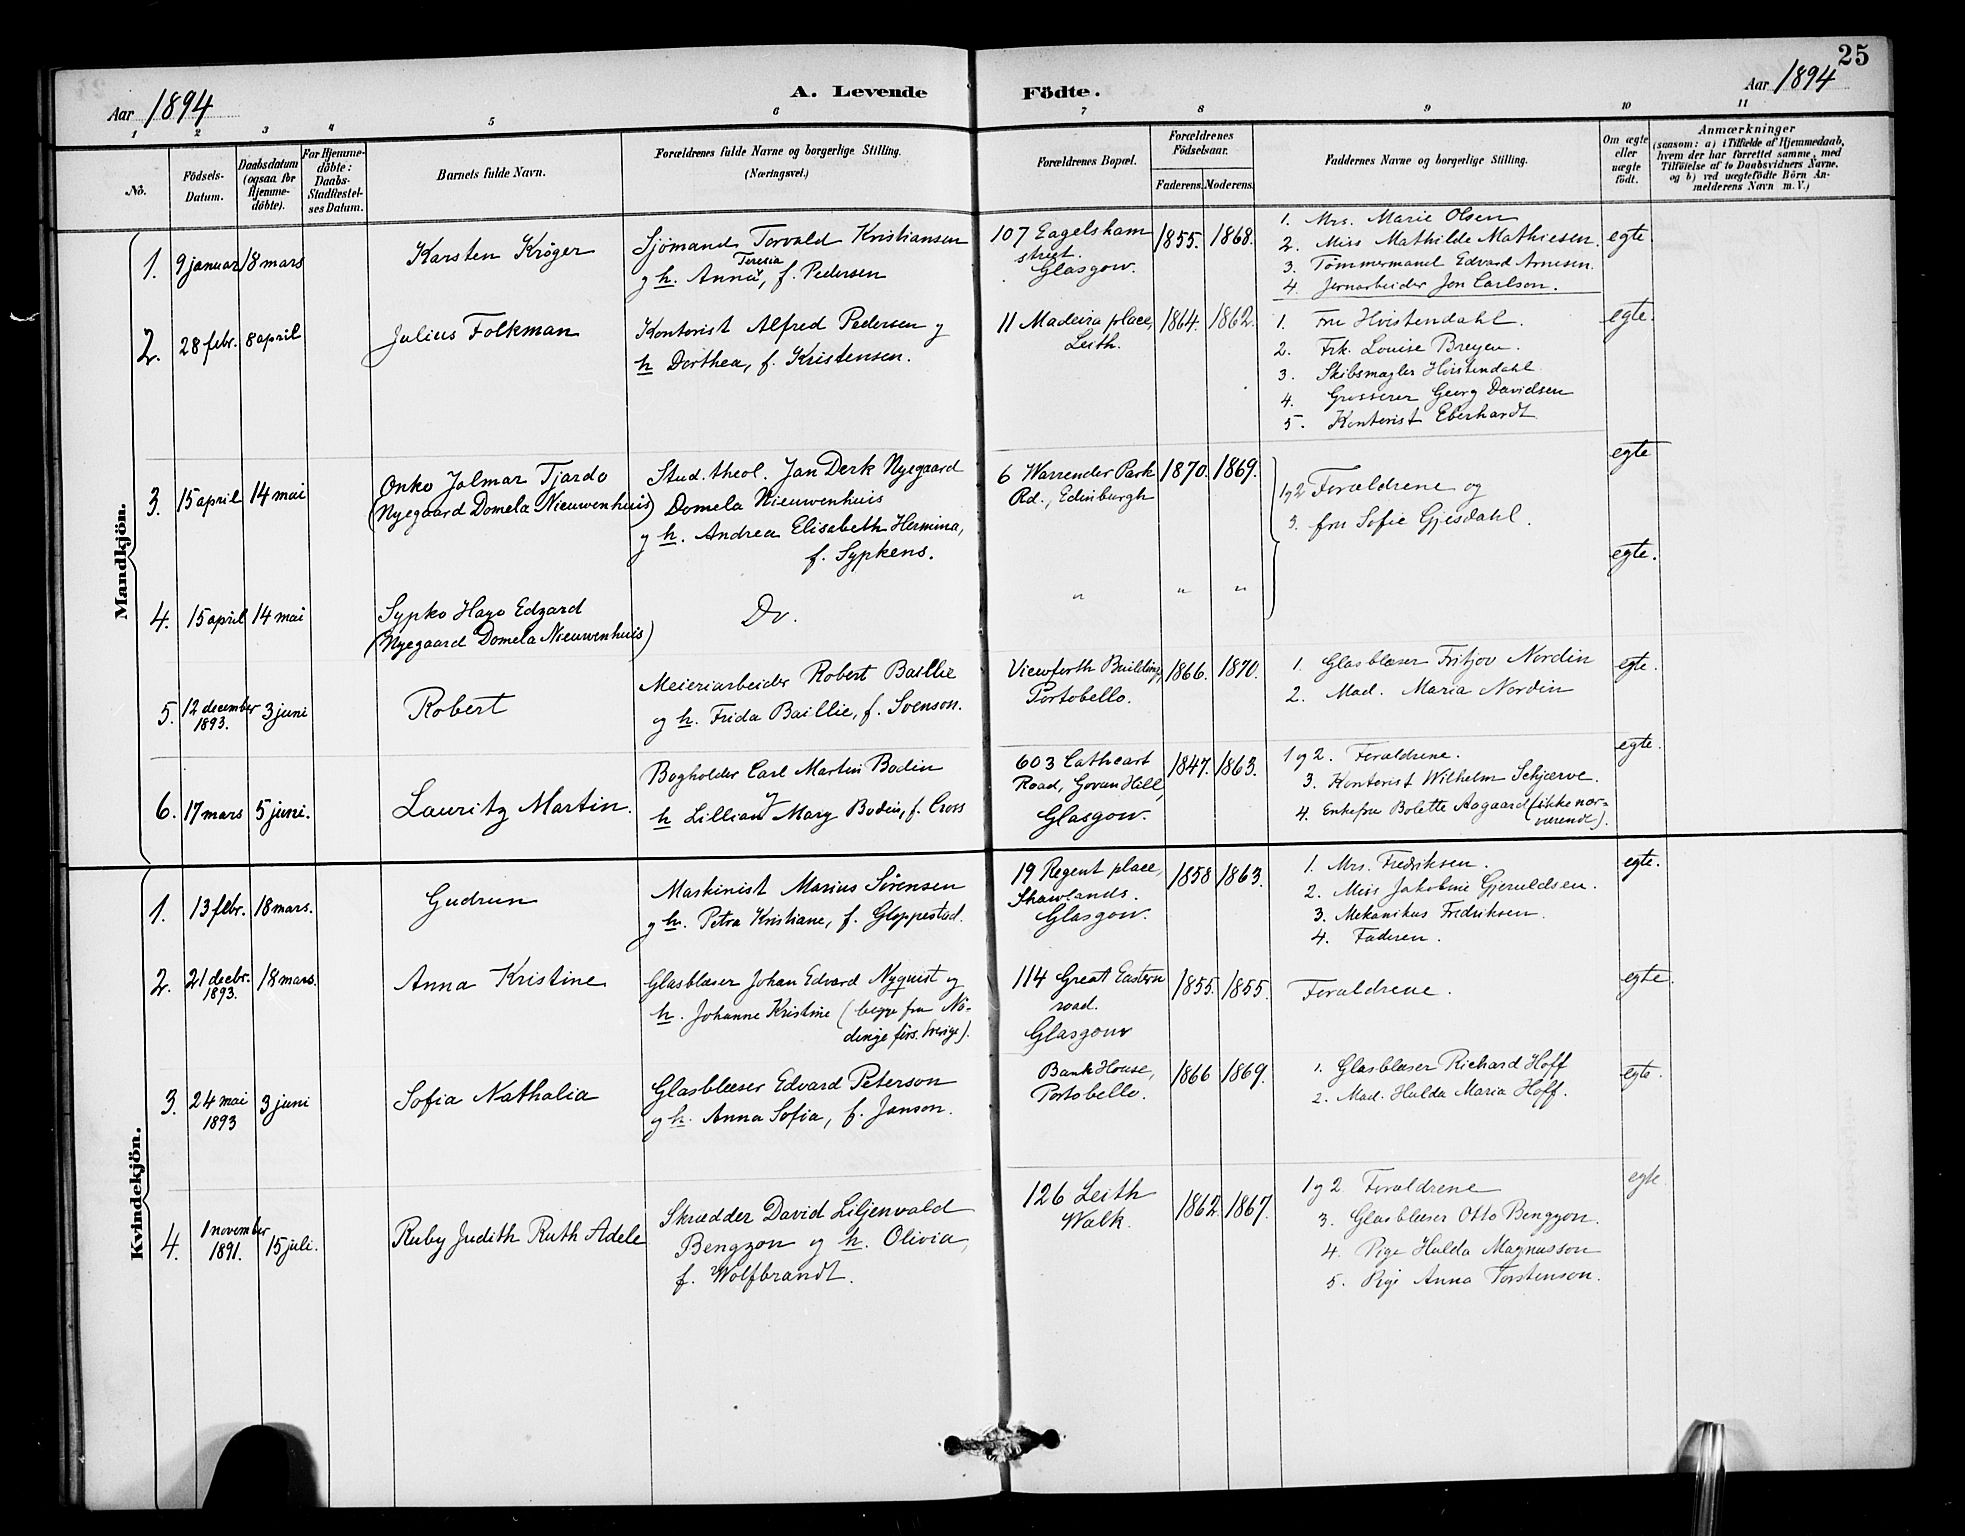 25
Aar 1894
A. Levende Födte.
Aar 1894
1 2 3 4 5 6 7 8 9 10 11
No.
Födsels-Datum.
Daabsdatum (ogsaa for Hjemme-döbte).
For Hjemme-döbte: Daabs-Stadfæstel-ses Datum.
Barnets fulde Navn.
Forældrenes fulde Navne og borgerlige Stilling. (Næringsvei.)
Forældrenes Bopæl.
Forældrenes Födselsaar.
Faderens. Moderens.
Faddernes Navne og borgerlige Stilling.
Om ægte eller uægte födt.
Anmærkninger
(saasom: a) i Tilfælde af Hjemmedaab, hvem der har forrettet samme, med Tilföielse af to Daabsvidners Navne. og b) ved uægtefödte Börn An-melderens Navn m. V.)
Mandkjön.
1. 9 januar 18 mars
Karsten Kröger
Sjömand Torvald Kristiansen
Teresia
og h. Anna, f. Pedersen
107 Eagelsham
street.
Glasgow.
1855. 1868.
1. Mrs. Marie Olsen
2. Miss Mathilde Mathiesen.
3. Tömmermand Edvard Arnesen.
4. Jernarbeider Jon Carlson.
egte.
2. 28 febr. 8 april
Julius Folkman
Kontorist Alfred Pedersen og
h Dorthea, f. Kristensen.
11 Madeira place,
Leith.
1864. 1862.
1. Fru Hvistendahl.
2. Frk. Louise Breyen.
3. Skibsmægler Hvistendahl
4. Grosserer Georg Davidsen
5. Kontorist Eberhardt
egte.
3. 15 april 14 mai
Onko Jalmar Tjardo
(Nyegaard Domela Nieuwenhuis)
Stud. theol. Jan Derk Nyegaard
Domela Nieuwenhuis
og h. Andrea Elisabeth Hermina,
f. Sypkens.
6 Warrender Park
Rd., Edinburgh
1870. 1869.
1 og 2 Forældrene og
3. fru Sofie Gjesdahl.
egte
4. 15 april 14 mai
Sypko Hayo Edzard
(Nyegaard Domela Nieuwenhuis)
Do.
" " "
egte.
5. 12 december 1893. 3 juni
Robert
Meieriarbeider Robert Baillie
og h. Frida Baillie, f. Svenson.
Viewforth Building,
Portobello.
1866. 1870.
1. Glasblæser Fritjov Nordin
2. Mad. Maria Nordin
egte.
6. 17 mars 5 juni.
Lauritz Martin.
Bogholder Carl Martin Bodin
og
h Lillian Mary Bodin, f. Cross
603 Cathcart
Road, Govan Hill,
Glasgow.
1847. 1863.
1 og 2. Forældrene.
3. Kontorist Wilhelm Schjærve.
4. Enkefru Bolette Aagaard (ikke nær-
værende).
egte.
Kvindekjön.
1. 13 febr. 18 mars.
Gudrun
Maskinist Marius Sörensen
og h. Petra Kristiane, f. Gloppestad.
19 Regent place,
Shawlands.
Glasgow.
1858 1863.
1. Mrs. Fredriksen.
2. Miss Jakobine Gjeruldsen.
3. Mekanikus Fredriksen.
4. Faderen.
egte.
2. 21 decbr. 1893. 18 mars.
Anna Kristine
Glasblæser Johan Edvard Nyquist og
h. Johanne Kristine (begge fra Nö-
dinge förs. Sverige).
114 Great Eastern
road.
Glasgow
1855. 1855.
Forældrene.
egte.
3. 24 mai 1893 3 juni
Sofia Nathalia
Glasblæser Edvard Peterson
og h. Anna Sofia, f. Janson.
Bank House,
Portobello.
1866 1869.
1. Glasblæser Richard Hoff
2. Mad. Hulda Maria Hoff.
egte.
4. 1 november 1891. 15 juli.
Ruby Judith Ruth Adele
Skrædder David Liljenvald
Bengzon og h. Olivia,
f. Wolfbrandt.
126 Leith
Walk.
1862. 1867.
1 og 2 Forældrene
3. Glasblæser Otto Bengzon.
4. Pige Hulda Magnusson
5. Pige Anna Torstenson.
egte.